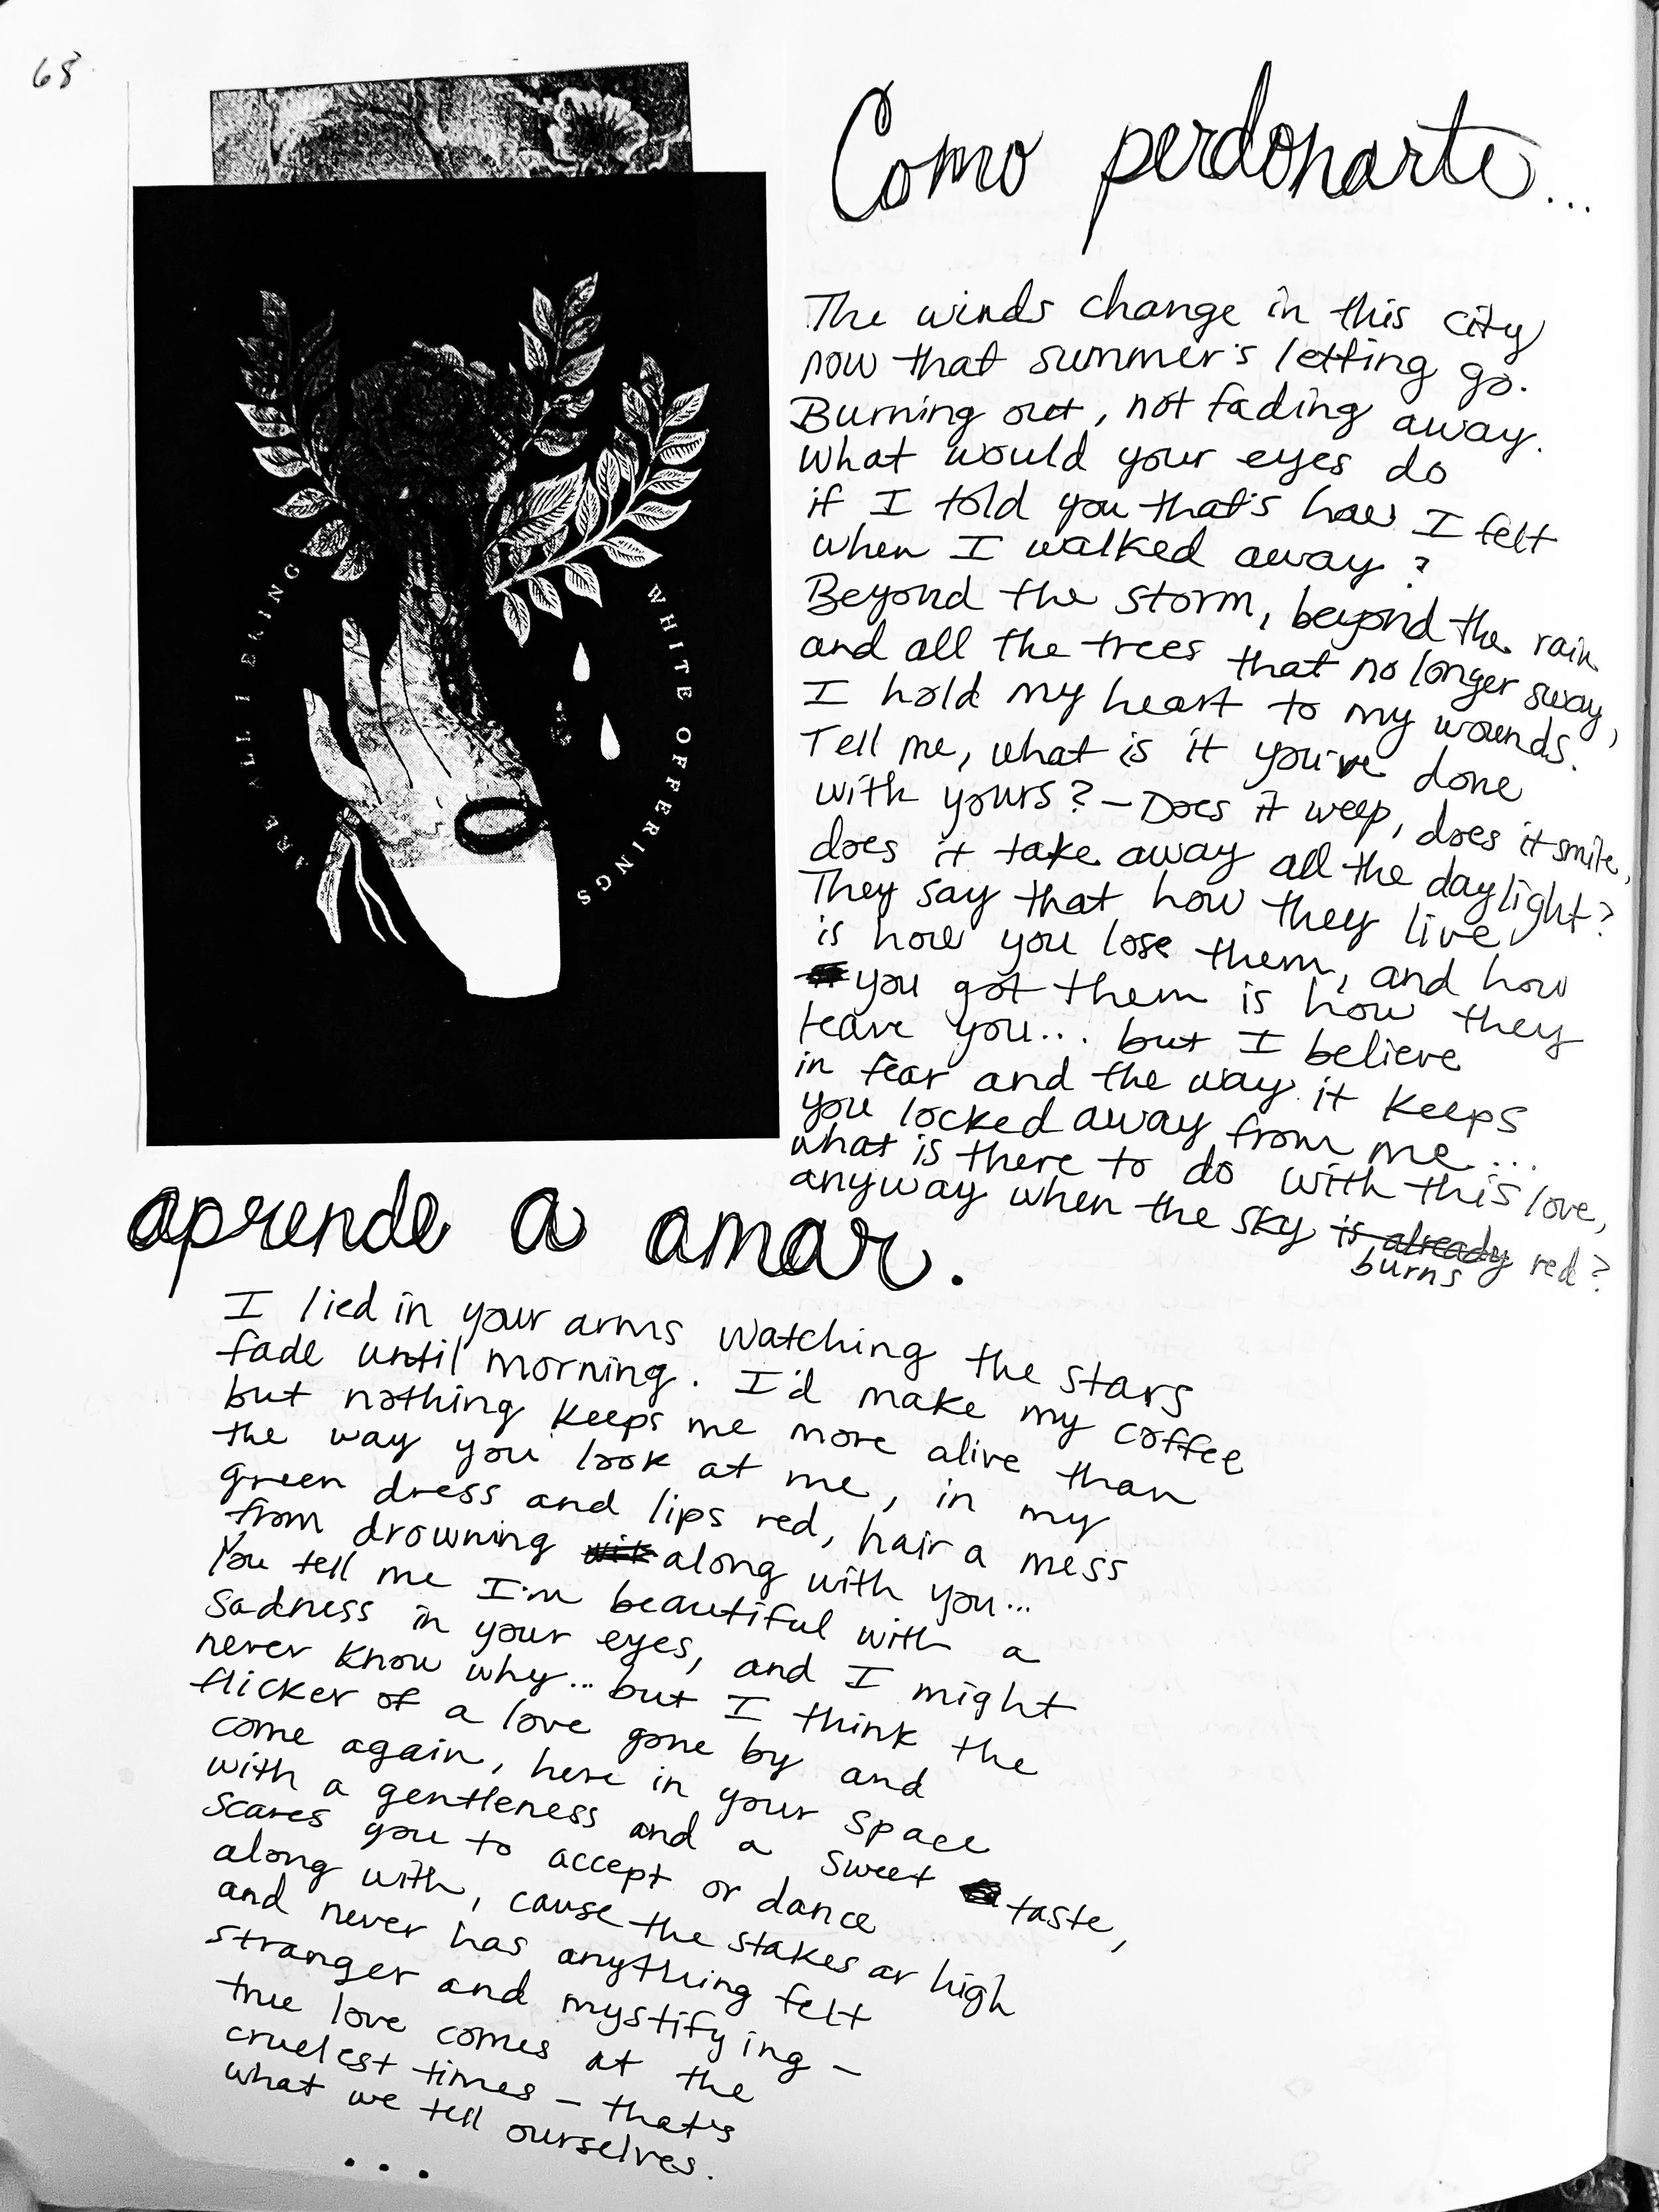 68
Como perdonarte...
ARE ALL I BRING
WHITE OFFERINGS
The winds change in this city
now that summer's letting go.
Burning out, not fading away.
What would your eyes do
if I told you that's how I felt
when I walked away?
Beyond the storm, beyond the rain
and all the trees that no longer sway,
I hold my heart to my wounds.
Tell me, what is it you've done
with yours? - Does it weep, does it smile,
does it take away all the daylight?
They say that how they live
is how you lose them, and how
you got them is how they
leave you... but I believe
in fear and the way it keeps
you locked away from me...
what is there to do with this love,
anyway when the sky is already red?
burns
aprende a amar.
I lied in your arms watching the stars
fade until morning. I'd make my coffee
but nothing keeps me more alive than
the way you look at me, in my
green dress and lips red, hair a mess
from drowning along with you...
You tell me I'm beautiful with a
sadness in your eyes, and I might
never know why... but I think the
flicker of a love gone by and
come again, here in your space
with a gentleness and a sweet taste,
scares you to accept or dance
along with, cause the stakes ar high
and never has anything felt
stranger and mystifying -
true love comes at the
cruelest times - that's
what we tell ourselves.
...